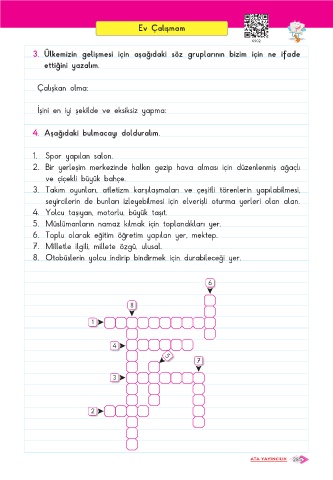 Ev Çalışmam
3. Ülkemizin gelişmesi için aşağıdaki söz gruplarının bizim için ne ifade
ettiğini yazalım.
Çalışkan olma:
İşini en iyi şekilde ve eksiksiz yapma:
4. Aşağıdaki bulmacayı dolduralım.
1. Spor yapılan salon.
2. Bir yerleşim merkezinde halkın gezip hava alması için düzenlenmiş ağaçlı
ve çiçekli büyük bahçe.
3. Takım oyunları, atletizm karşılaşmaları ve çeşitli törenlerin yapılabilmesi,
seyircilerin de bunları izleyebilmesi için elverişli oturma yerleri olan alan.
4. Yolcu taşıyan, motorlu, büyük taşıt.
5. Müslümanların namaz kılmak için toplandıkları yer.
6. Toplu olarak eğitim öğretim yapılan yer, mektep.
7. Milletle ilgili, millete özgü, ulusal.
8. Otobüslerin yolcu indirip bindirmek için durabileceği yer.
6
8
1
4
5
7
3
2
ATA YAYINCILIK